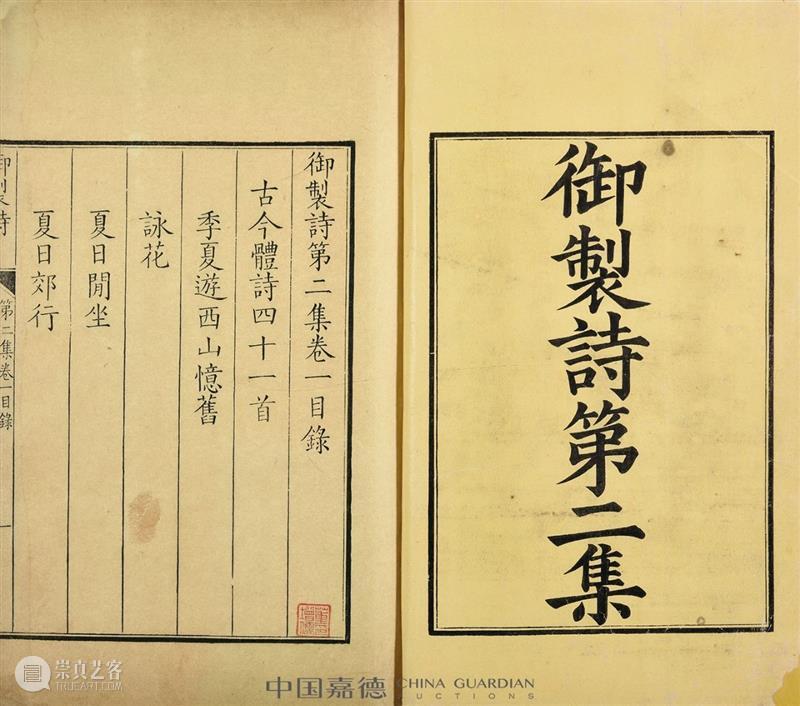 御製詩第二集
御製詩第二集卷一目錄
古今體詩四十一首
季夏遊西山憶舊
詠花
夏日閒坐
夏日郊行
御製詩
第二集卷一目錄
一
崇真艺客
TRUEART.COM
中国嘉德 CHINA GUARDIAN
AUCTIONS